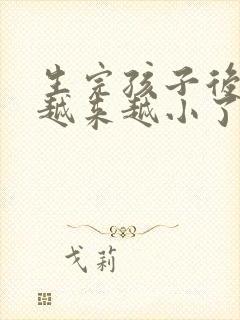 生完孩子後
越来越小了
戈莉